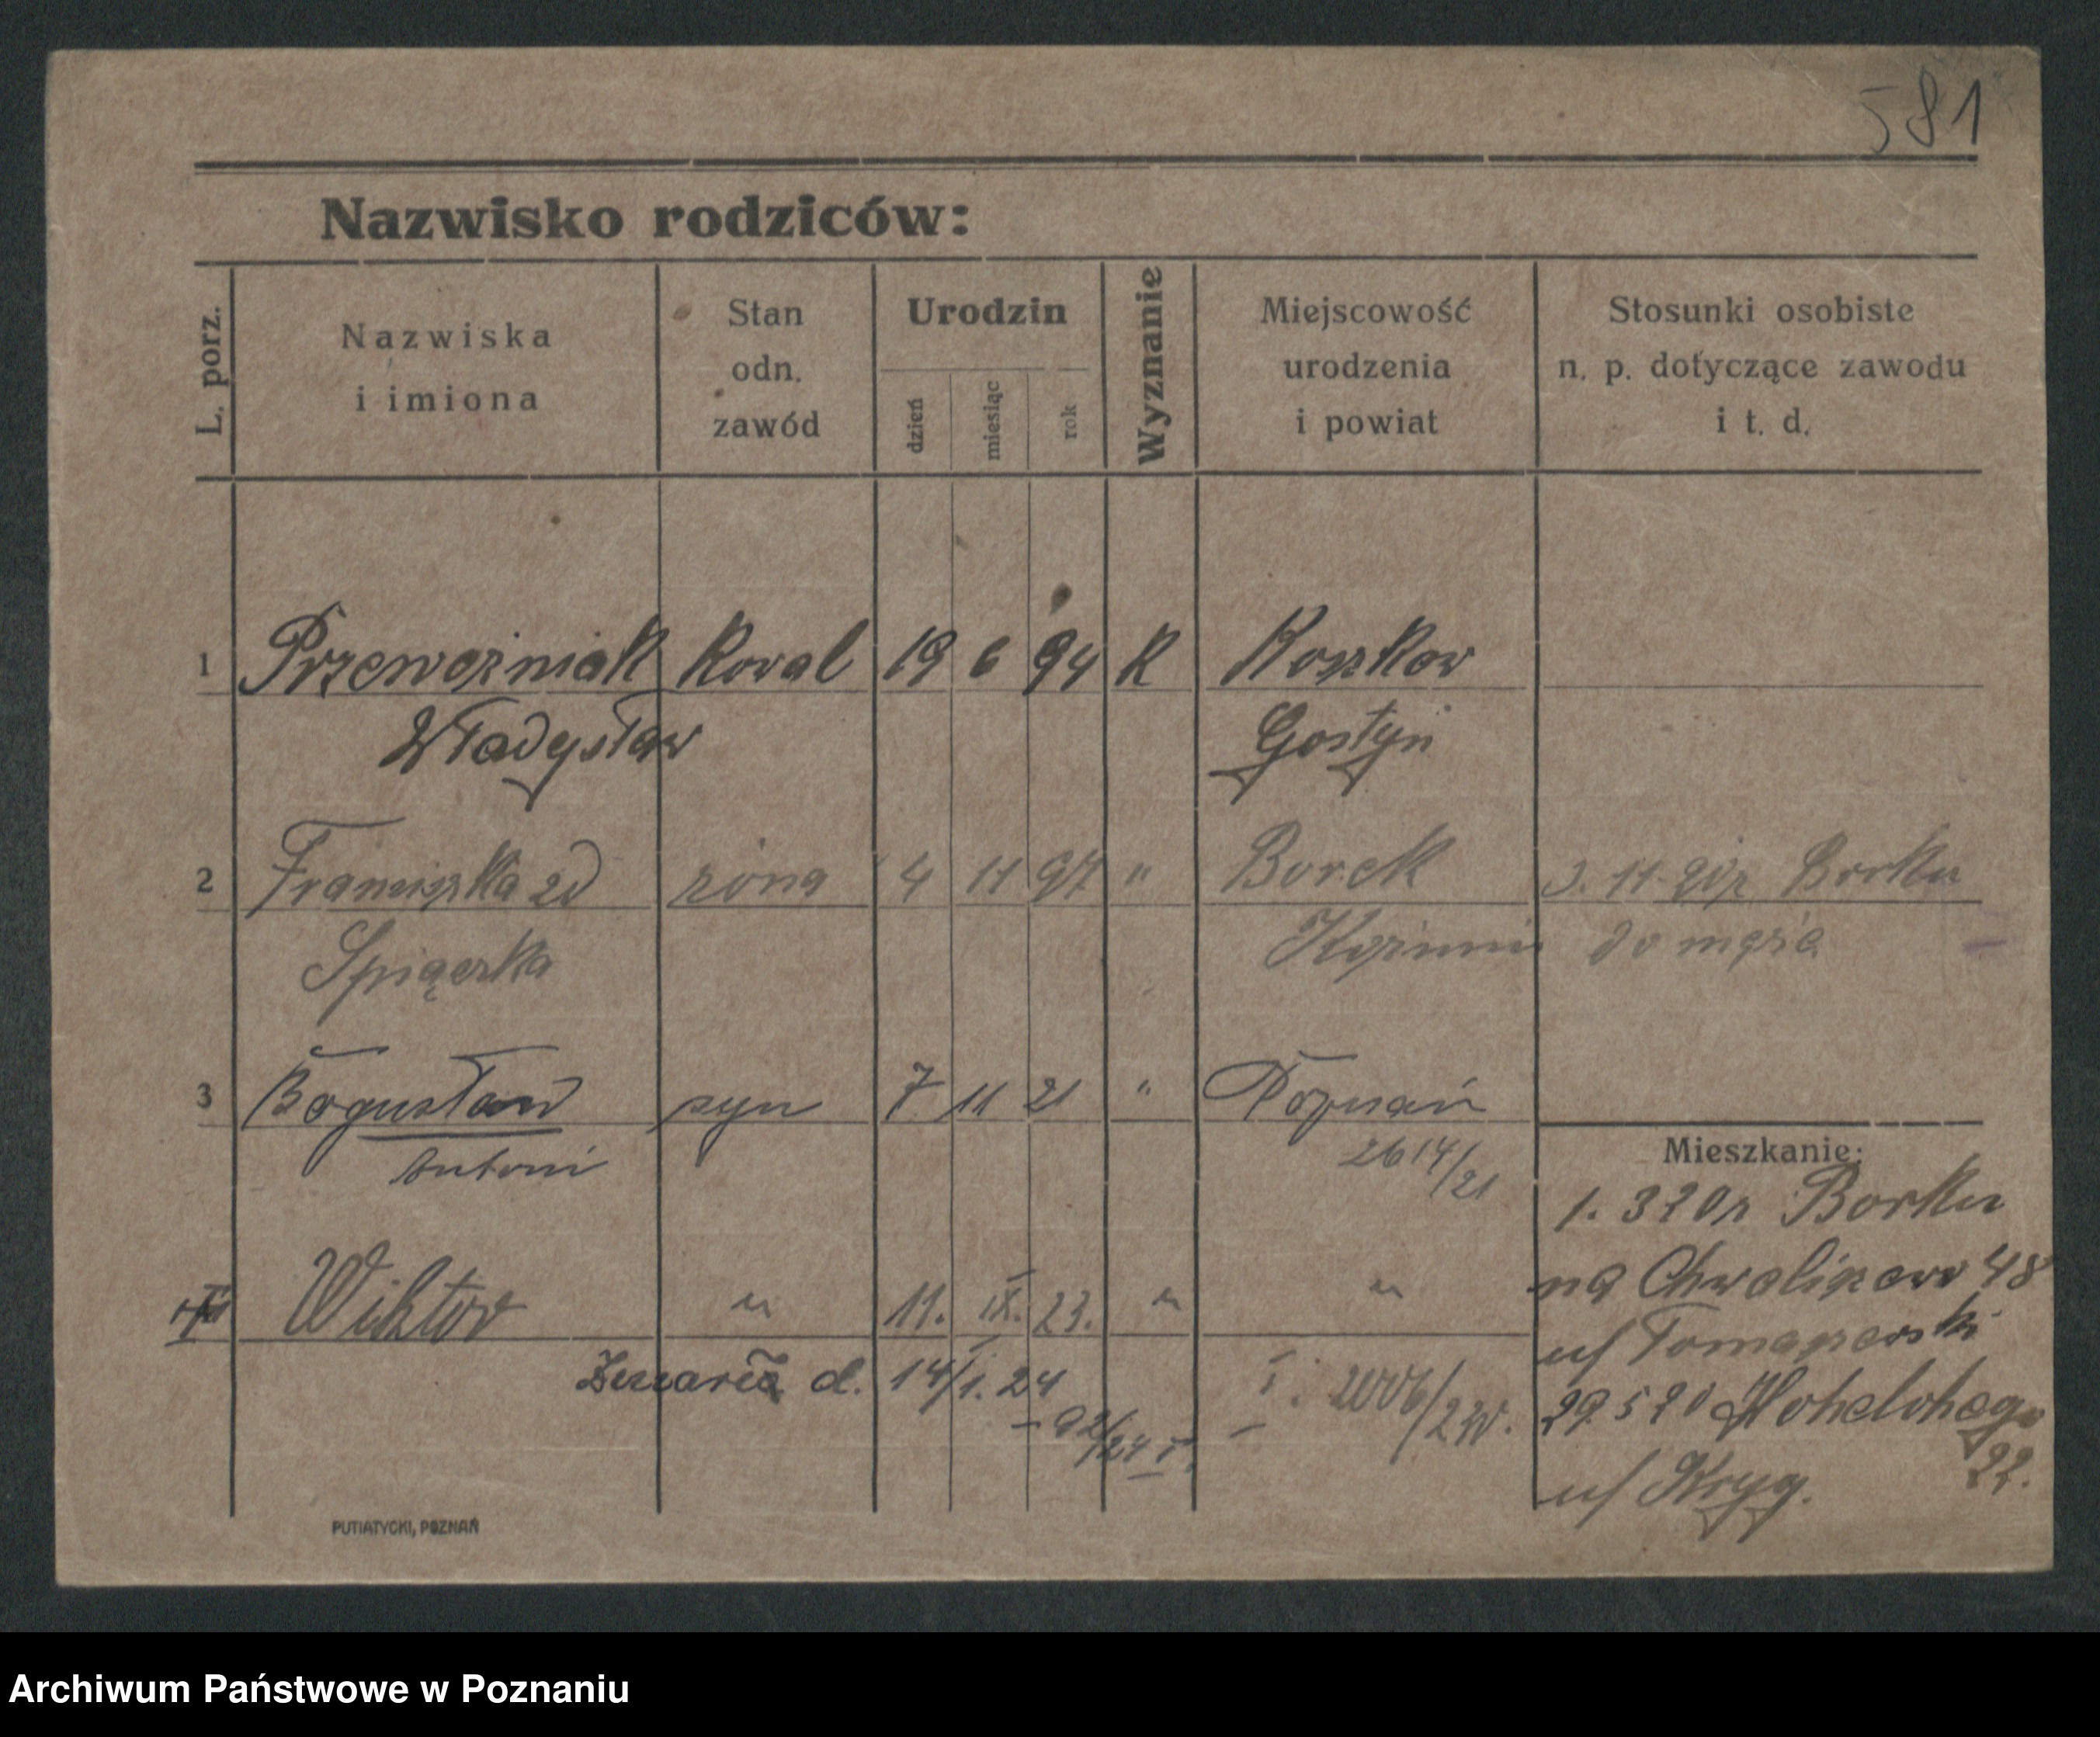 581
Nazwisko rodziców:
L. porz.
Nazwiska
i imiona
Stan
odn.
zawód
Urodzin
dzień
miesiąc
rok
Wyznanie
Miejscowość
urodzenia
i powiat
Stosunki osobiste
n. p. dotyczące zawodu
i t. d.
1 Przewoźniak Kowal 19 6 94 K Koszkow
Władysław Gostyń
2 Franciszka zd żona 4 11 97 " Borek 3. 11. 20 z Borku
Spiączka Koźmin do męża
3 Bogusław syn 7 11 21 " Poznań
Antoni 2614/21
Mieszkanie:
1. 3 20 z Borku
na Chwaliszewo 48
u/ Tomaszewski
Wiktor " 11. IX. 23. " "
Zmarł d. 14/1. 24
92/24
29. 5 20 Hohelohego
22.
u/ Kryg.
PUTIATYCKI, POZNAŃ
Archiwum Państwowe w Poznaniu